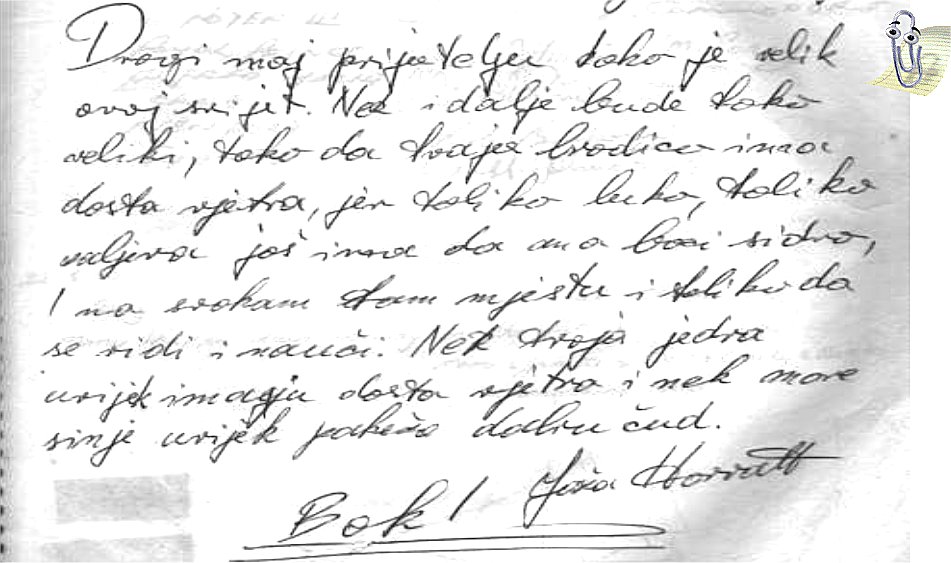 Dragi moj prijatelju tako je velik
ovaj svijet. Nek i dalje bude tako
veliki, tako da tvoja brodica ima
dosta vjetra, jer toliko luka, toliko
uvala još ima da ona baci sidro,
I na svakom tom mjestu i toliko da
se vidi i nauči. Nek tvoja jedra
uvijek imaju dosta vjetra i nek more
sinje uvijek pokaže dobru ćud.
Joža Horvat
Bok!